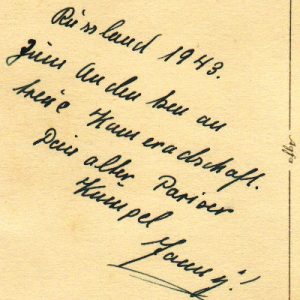 Russland 1943.
Zum Andenken an
treue Kameradschaft.
Dein alter Pariser
Kumpel